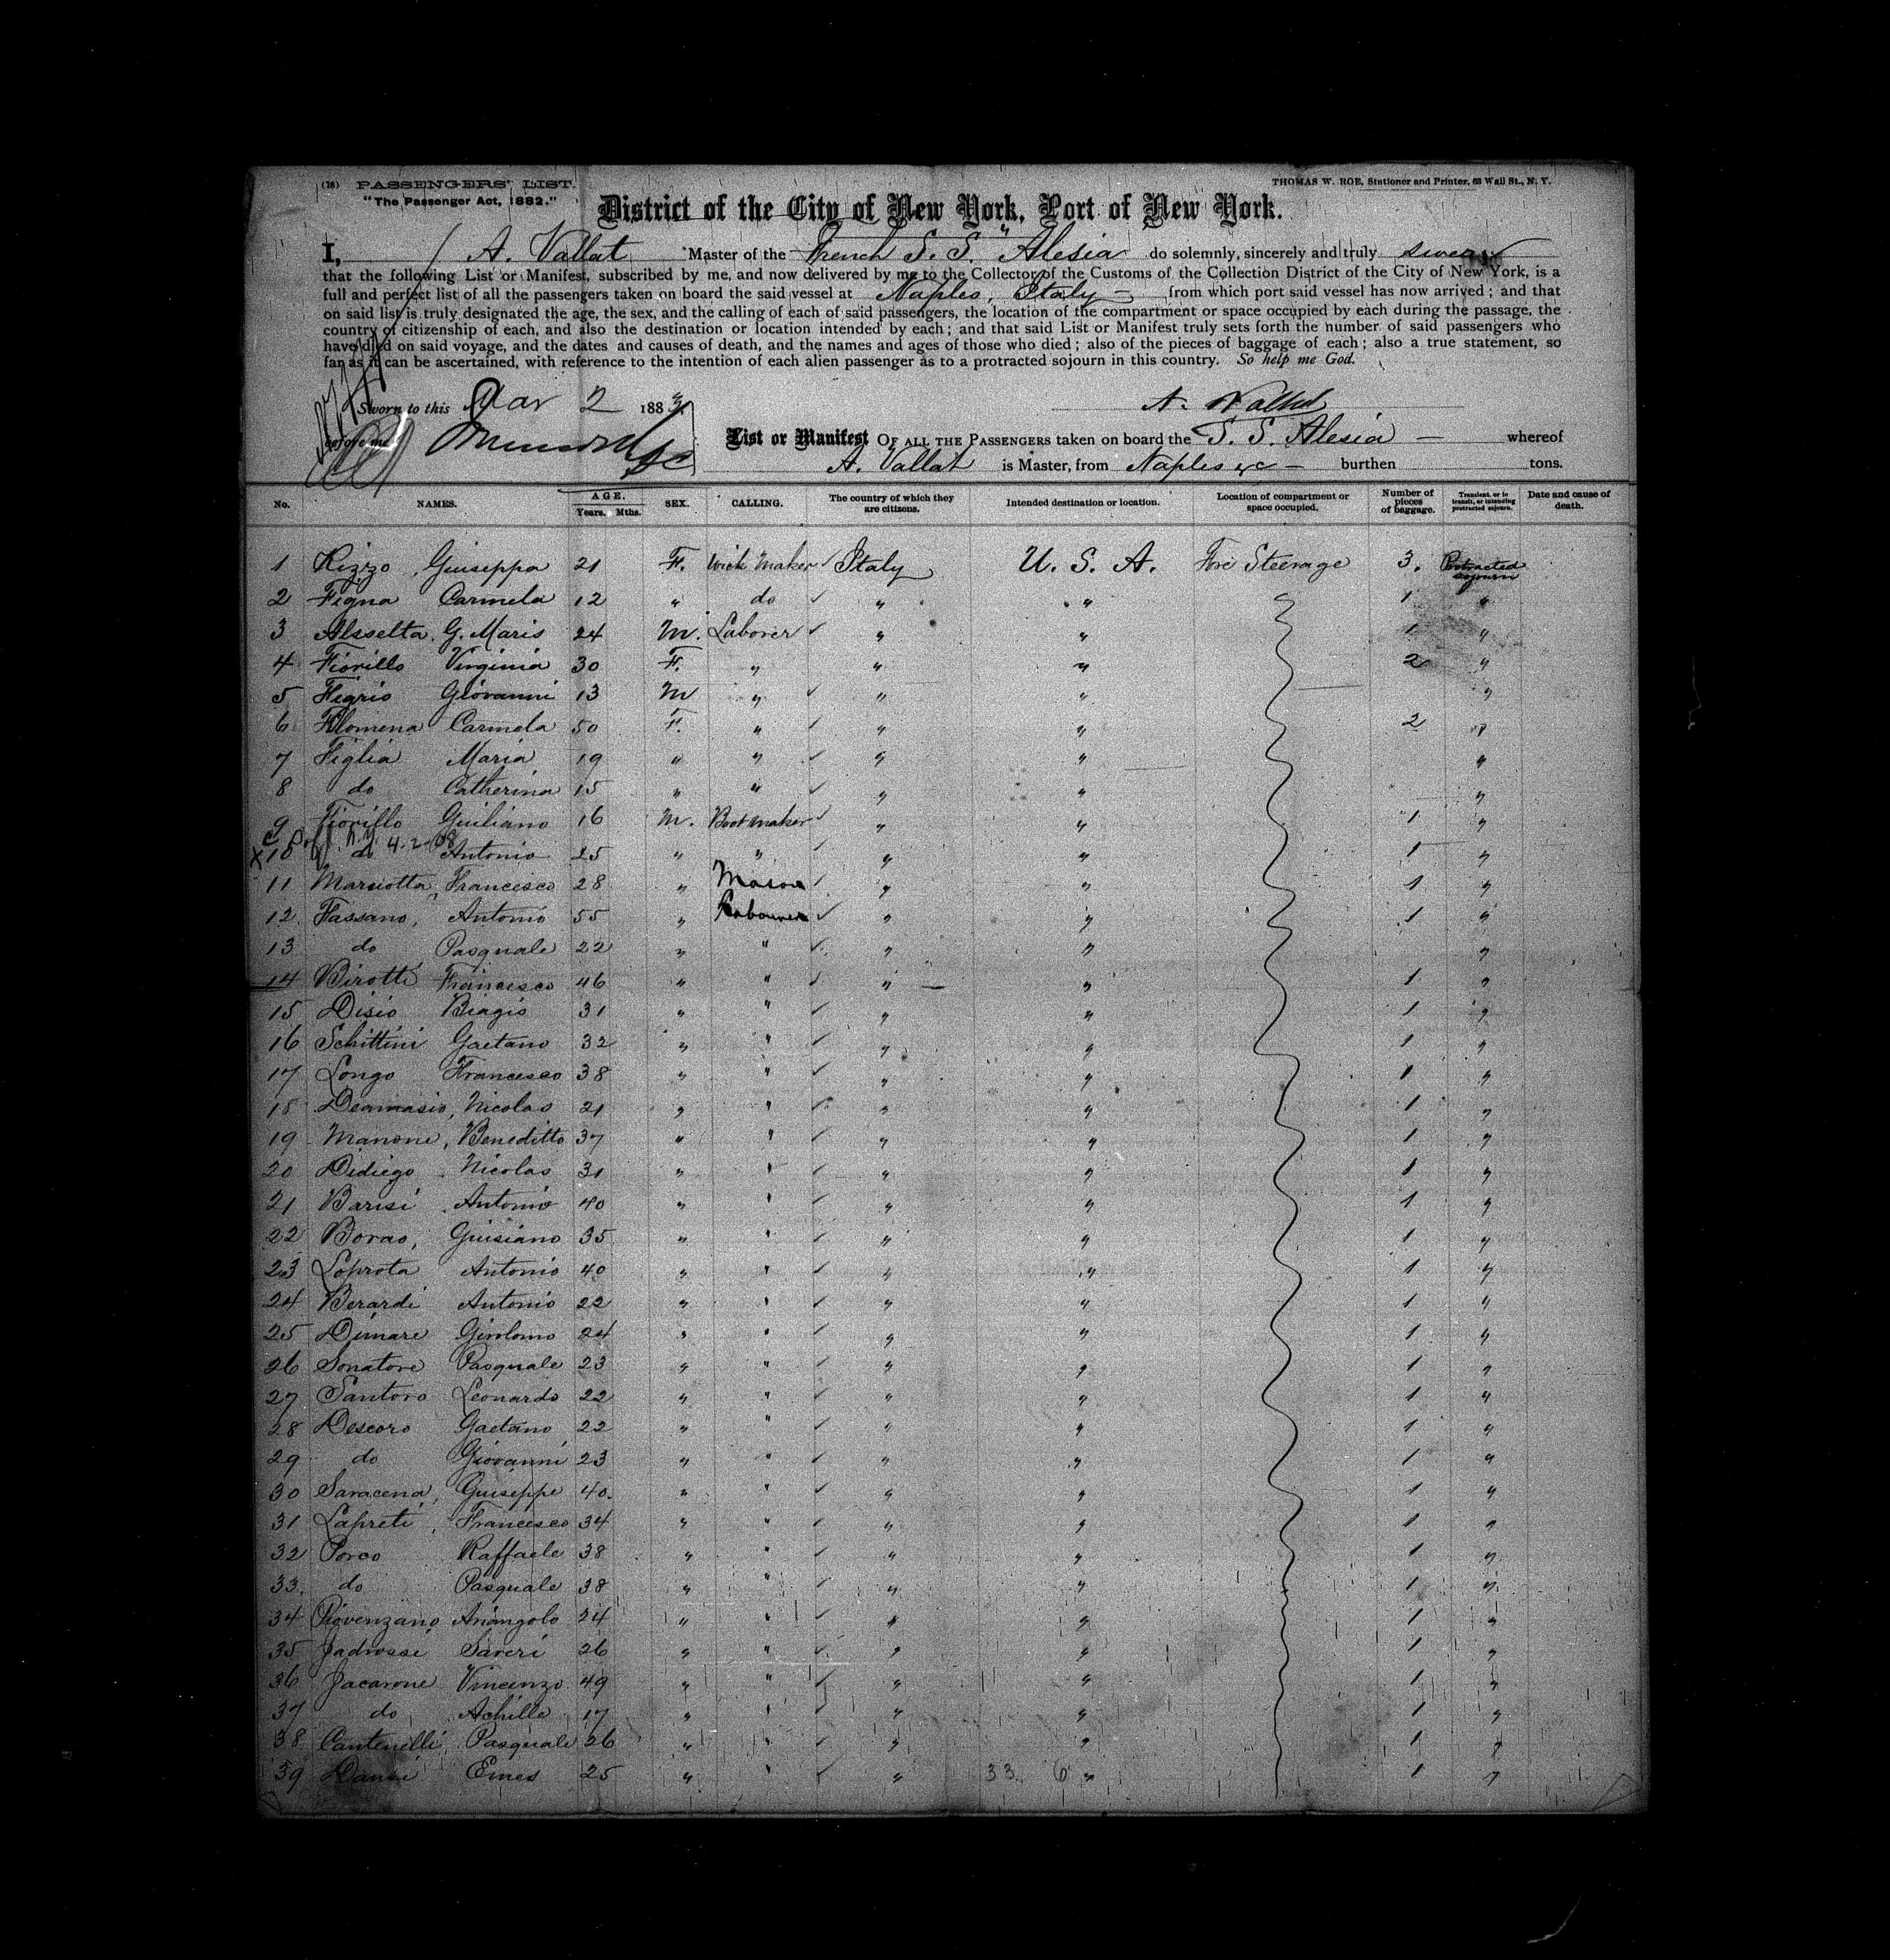 (18) PASSENGERS' LIST. THOMAS W. ROE, Stationer and Printer, 63 Wall St., N. Y.
"The Passenger Act, 1882."
District of the City of New York, Port of New York.
I, A. Vallat Master of the French S. S. "Alesia do solemnly, sincerely and truly swear
that the following List or Manifest, subscribed by me, and now delivered by me to the Collector of the Customs of the Collection District of the City of New York, is a
full and perfect list of all the passengers taken on board the said vessel at Naples, Italy — from which port said vessel has now arrived; and that
on said list is truly designated the age, the sex, and the calling of each of said passengers, the location of the compartment or space occupied by each during the passage, the
country of citizenship of each, and also the destination or location intended by each; and that said List or Manifest truly sets forth the number of said passengers who
have died on said voyage, and the dates and causes of death, and the names and ages of those who died; also of the pieces of baggage of each; also a true statement, so
far as it can be ascertained, with reference to the intention of each alien passenger as to a protracted sojourn in this country. So help me God.
Sworn to this Mar 2 1883 A. Vallat
before me
List or Manifest OF ALL THE PASSENGERS taken on board the S. S. Alesia — whereof
A. Vallat is Master, from Naples &c — burthen tons.
No. NAMES. AGE. Years. Mths. SEX. CALLING. The country of which they are citizens. Intended destination or location. Location of compartment or space occupied. Number of pieces of baggage. Transient, or in transit, or intending protracted sojourn. Date and cause of death.
1 Rizzo, Giuseppa 21 F. Wick Maker Italy U. S. A. Fore Steerage 3. Protracted sojourn
2 Figna Carmela 12 " do " " 1 "
3 Alsselta, G. Maris 24 M. Laborer " " 1 "
4 Fiorillo Virginia 30 F. " " " 2 "
5 Figrio Giovanni 13 M " " " "
6 Filomena Carmela 50 F. " " " 2 "
7 Figlia Maria 19 " " " " "
8 do Catherina 15 " " " " "
9 Fiorillo Giuliano 16 M. Bootmaker " " 1 "
4-2-08
X 10 do Antonio 25 " " " " 1 "
11 Marciotta, Francesco 28 " Mason " " 1 "
12 Fassano, Antonio 55 " Labourer " " 1 "
13 do Pasquale 22 " " " " "
14 Birotti Francesco 46 " " " " 1 "
15 Disio Biagio 31 " " " " 1 "
16 Schittini Gaetano 32 " " " " 1 "
17 Longo Francesco 38 " " " " 1 "
18 Deamasio, Nicolas 21 " " " " 1 "
19 Manone, Beneditto 37 " " " " 1 "
20 Didiego Nicolas 31 " " " " 1 "
21 Barisi Antonio 40 " " " " 1 "
22 Borao, Guisiano 35 " " " " 1 "
23 Loprota Antonio 40 " " " " 1 "
24 Berardi Antonio 22 " " " " 1 "
25 Dimare Girolomo 24 " " " " 1 "
26 Sonatore Pasquale 23 " " " " 1 "
27 Santoro Leonardo 22 " " " " 1 "
28 Descoro Gaetano 22 " " " " 1 "
29 do Giovanni 23 " " " " 1 "
30 Saracena, Guiseppe 40. " " " " 1 "
31 Lapreti, Francesco 34 " " " " 1 "
32 Porco Raffaele 38 " " " " 1 "
33. do Pasquale 38 " " " " 1 "
34 Provenzano Ariangolo 24 " " " " 1 "
35 Jadrossi Saveri 26 " " " " 1 "
36 Jacarone Vincenzo 49 " " " " 1 "
37 do Achille 17 " " " " 1 "
38 Cantenilli, Pasquale 26 " " " " 1 "
39 Dansi Emes 25 " " " 33 6 " 1 "